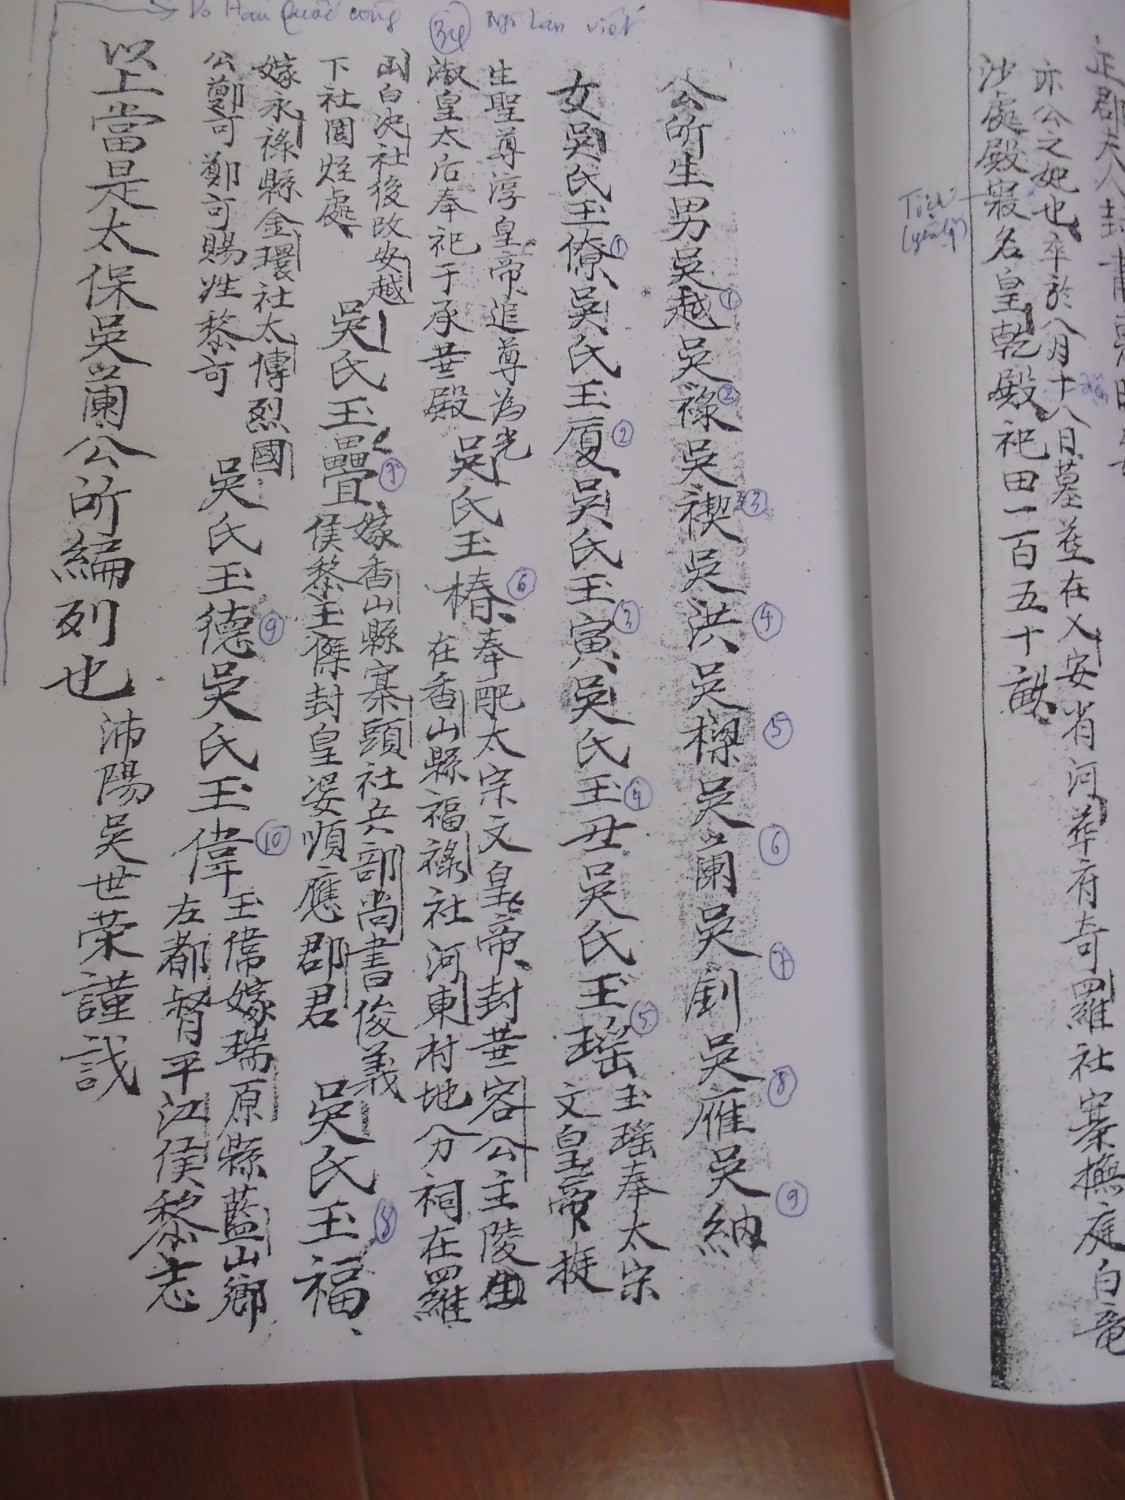 正郡夫人封
亦公之妃也卒於八月十八日墓在乂安省河華府奇羅社寨撫庭白竜
沙處殿寂名皇乾殿祀田一百五十畝
Tịch
(yên lặng)
Do Hán Quốc công
34
Ngô Lan viết
公所生男吳越①吳祿②吳禊③吳洪④吳樑⑤吳蘭⑥吳釗⑦吳雁⑧吳納⑨
女吳氏玉僚①吳氏玉廈②吳氏玉寅③吳氏玉丑④吳氏玉瑤⑤
玉瑤奉太宗
文皇帝挺
生聖尊淳皇帝追尊為光
淑皇太后奉祀于承華殿
吳氏玉椿⑥
奉配太宗文皇帝封華容公主陵
在香山縣福祿社河東村地分祠在羅
山白次社後改安越
下社園𡊰處
吳氏玉疊
嫁香山縣寨頭社兵部尚書俊義
侯黎主傑封皇姿順應郡君
吳氏玉福⑧
嫁永祿縣金環社太傅烈國
公鄭可鄭可賜姓黎可
吳氏玉德⑨吳氏玉偉⑩
玉偉嫁瑞原縣藍山鄉
左都督平江侯黎志
以上當是太保吳蘭公所編列也
沛陽吳世荣謹誌